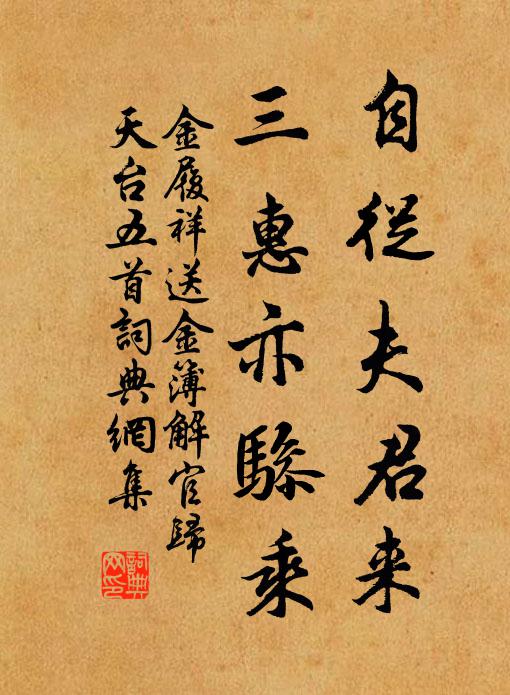 自從夫君来
三惠亦驂乘
金履祥送金簿解官歸
天台五首詞典網集
詞典網印